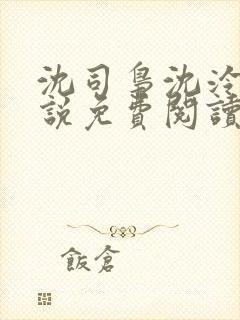 沈司梟沈泠
說免費閱讀
飯倉